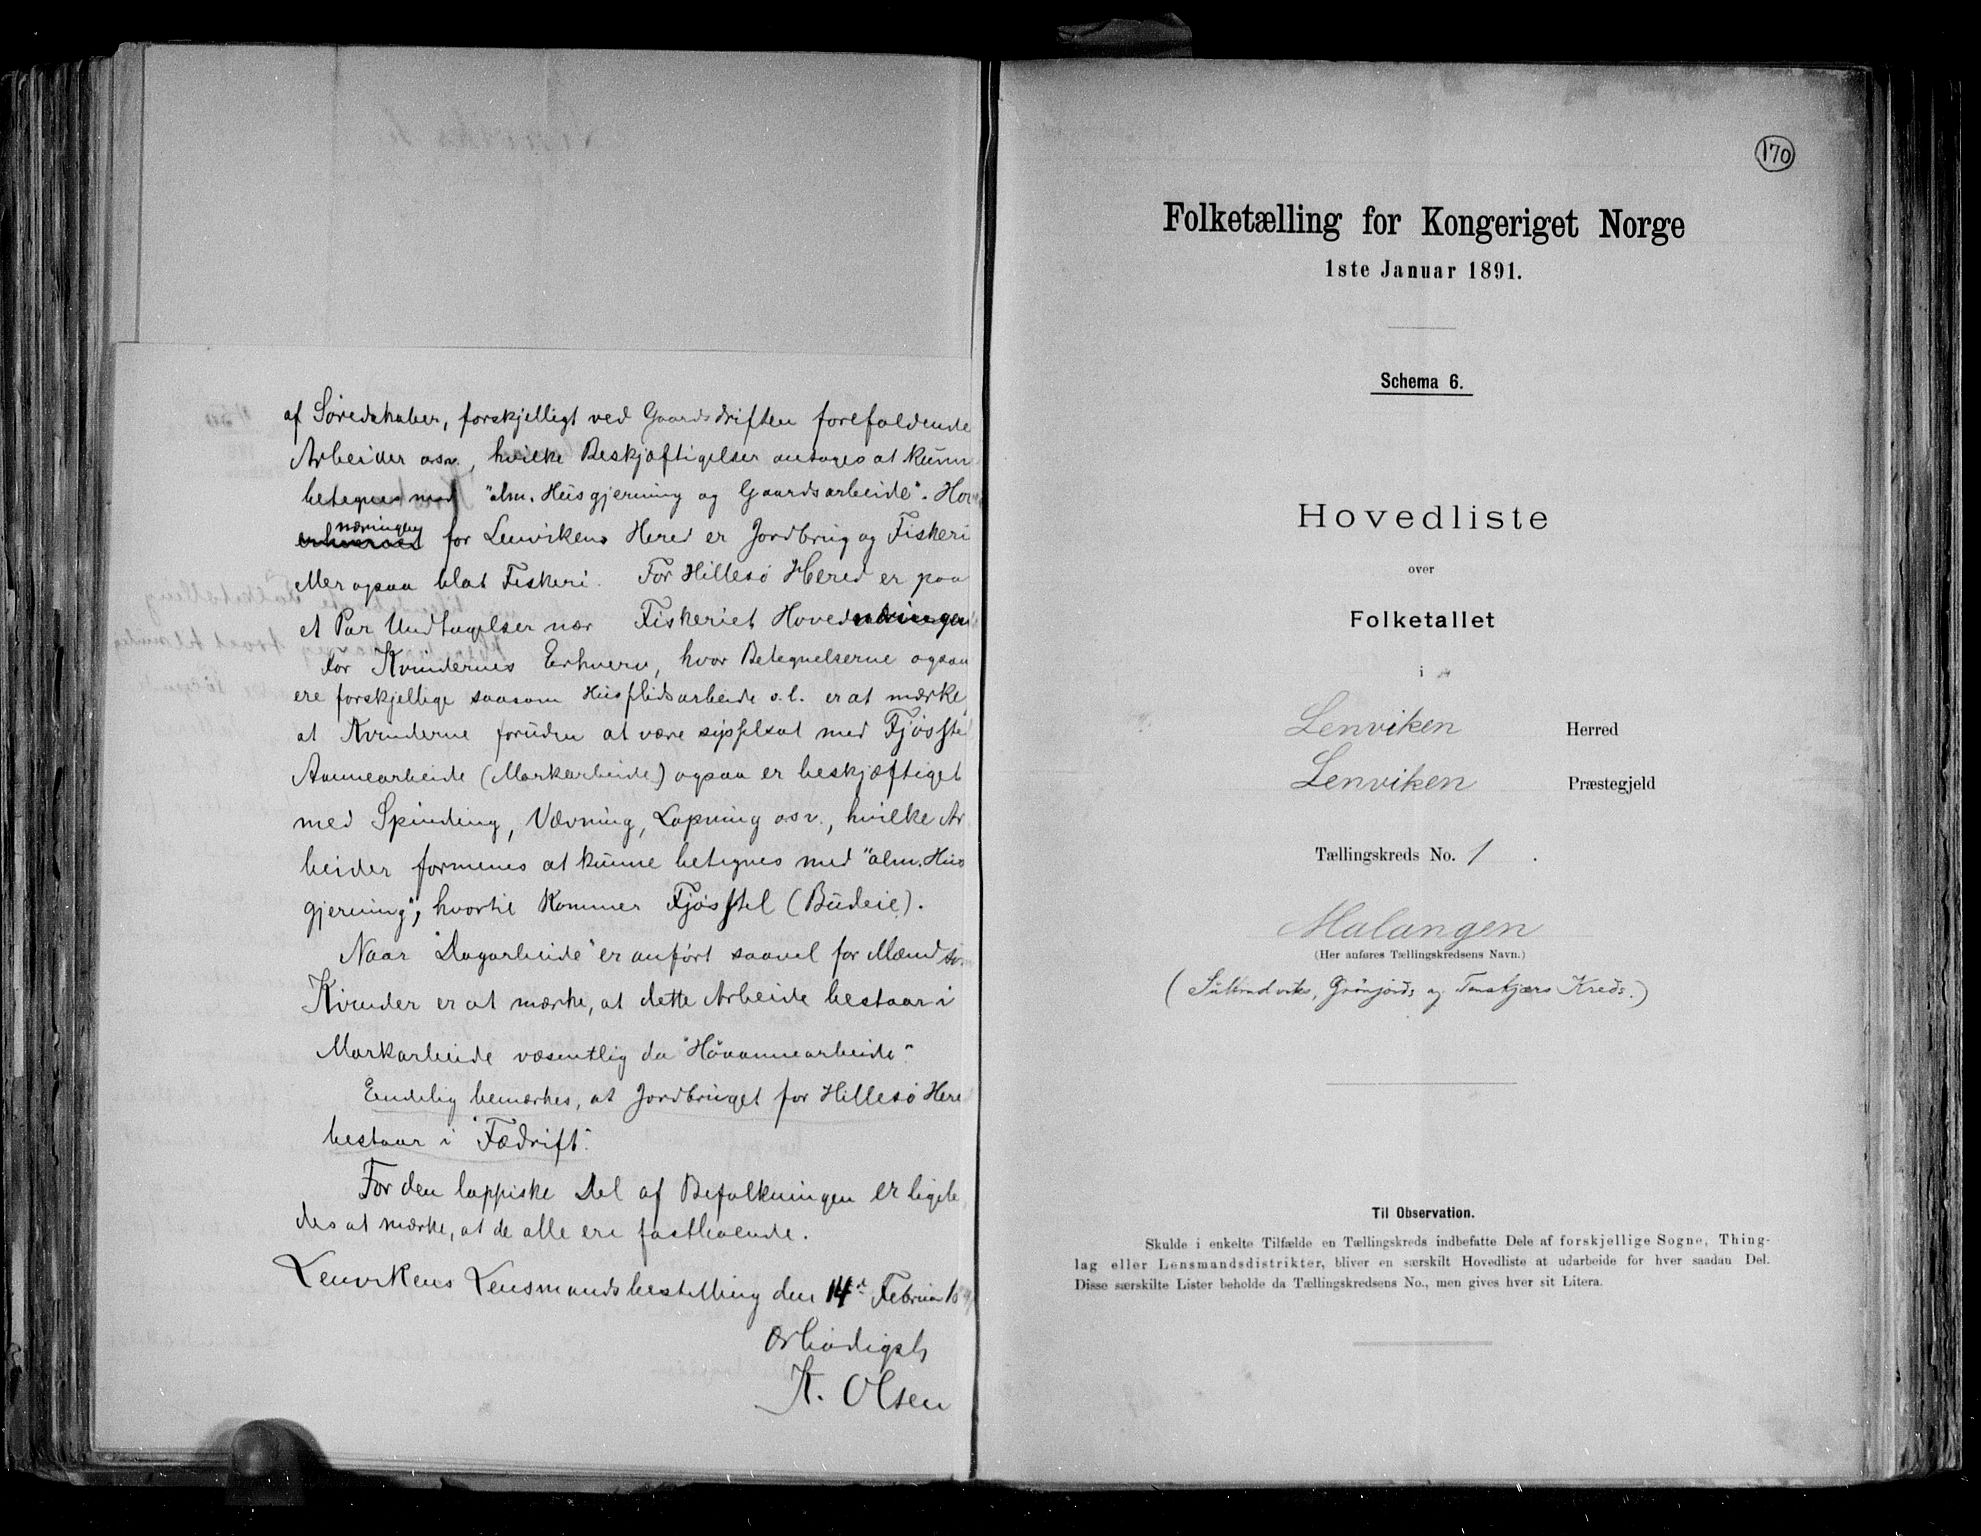 af Søredskaber, forskjelligt ved Gaardsdriften forefaldende
Arbeider osv., hvilke Beskjæftigelser antages at kunn
betegnes med "alm. Husgjerning og Gaardsarbeide". Hov
næringen
for Lenvikens Hered er Jordbrug og Fiskeri
Mer ogsaa blot Fiskeri. For Hillesø Hered er paa
et Par Undtagelser nær Fiskeriet Hovednæringen
For Kvindernes Erhverv, hvor Betegnelserne ogsaa
ere forskjellige saasom Husflidsarbeide o.l. er at mærke,
at Kvinderne foruden at være sysselsat med Fjøsstel
Aannearbeide (Markarbeide) ogsaa er beskjæftiget
med Spinding, Vævning, Lapning osv., hvilke Ar
beider formenes at kunne betegnes med "alm. Hus
gjerning", hvortil kommer Fjøsstel (Budeie).
Naar "Dagarbeide" er anført saavel for Mænd som
Kvinder er at mærke, at dette Arbeide bestaar i
Markarbeide væsentlig da "Høaannearbeide".
Endelig bemærkes, at Jordbruget for Hillesø Here
bestaar i "Fædrift".
For den lappiske Del af Befolkningen er ligele
des at mærke, at de alle ere fastboende.
Lenvikens Lensmandsbestilling den 14d Februar 189
Ærbødigst
K. Olsen
170
Folketælling for Kongeriget Norge
1ste Januar 1891.
Schema 6.
Hovedliste
over
Folketallet
i
Lenviken Herred
Lenviken Præstegjeld
Tællingskreds No. 1.
Malangen
(Her anføres Tællingskredsens Navn.)
(Sultindviks, Grønjords og Tenskjærs Kreds.)
Til Observation.
Skulde i enkelte Tilfælde en Tællingskreds indbefatte Dele af forskjellige Sogne, Thing-
lag eller Lensmandsdistrikter, bliver en særskilt Hovedliste at udarbeide for hver saadan Del.
Disse særskilte Lister beholde da Tællingskredsens No., men gives hver sit Litera.